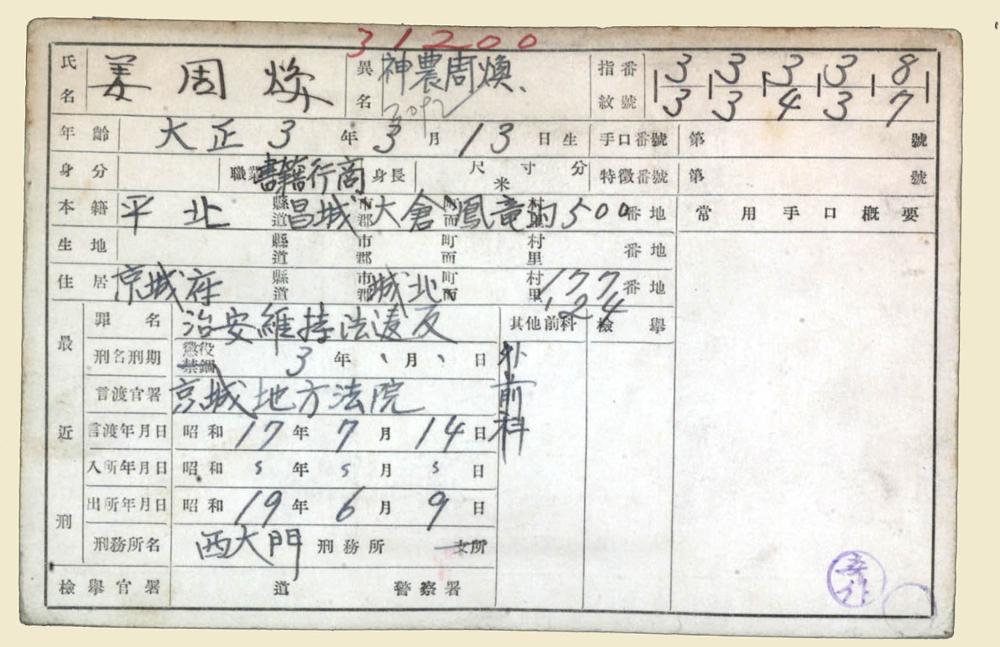 31200
氏名 姜周煥 異名 神農周煥、 指紋番號 3 3 3 3 8
3 3 4 3 7
年齡 大正3年3月13日生 手口番號 第 號
身分 職業 書籍行商 身長 尺寸分 米 特徵番號 第 號
本籍 平北 縣道 昌城 市郡 大倉 町面 鳳竜洞 村里 500 番地 常用手口概要
生地 縣道 市郡 町面 村里 番地
住居 京城府 縣道 市郡 城北 町面 村里 177 番地
124
最近刑 罪名 治安維持法違反 其他前科 檢擧
刑名刑期 懲役 禁錮 3年、月、日 外前科
言渡官署 京城地方法院
言渡年月日 昭和17年7月14日
入所年月日 昭和 s 年 s 月 s 日
出所年月日 昭和19年6月9日
刑務所名 西大門 刑務所 支所
檢擧官署 道 警察署